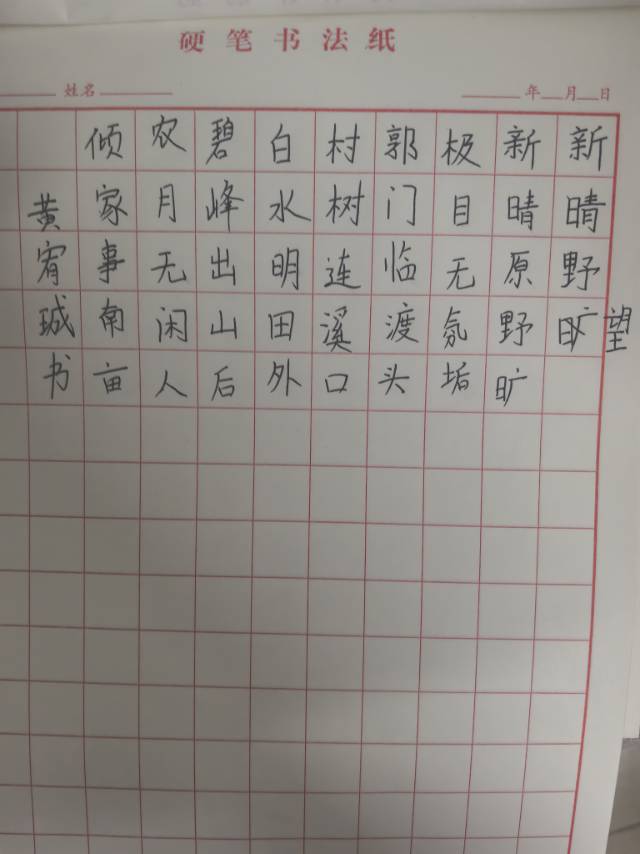 硬笔书法纸
姓名
年 月 日
新晴野旷望
新晴原野旷
极目无氛垢
郭门临渡头
村树连溪口
白水明田外
碧峰出山后
农月无闲人
倾家事南亩
黄宥珹书